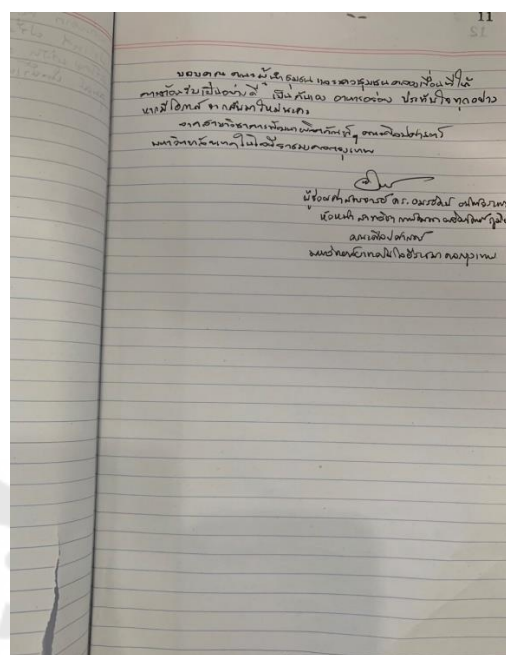 11
ขอบคุณ คณะผู้นำชุมชน และชาวชุมชนคลองเขื่อนที่ให้
การต้อนรับเป็นอย่างดี เป็นกันเอง อาหารอร่อย ประทับใจทุกอย่าง
หากมีโอกาส จะกลับมาใหม่นะคะ
จากสาขาวิชาการพัฒนาผลิตภัณฑ์ฯ คณะศิลปศาสตร์
มหาวิทยาลัยเทคโนโลยีราชมงคลกรุงเทพ
ผู้ช่วยศาสตราจารย์ ดร.
หัวหน้าสาขาวิชาการพัฒนาผลิตภัณฑ์ภูมิ
คณะศิลปศาสตร์
มหาวิทยาลัยเทคโนโลยีราชมงคลกรุงเทพ